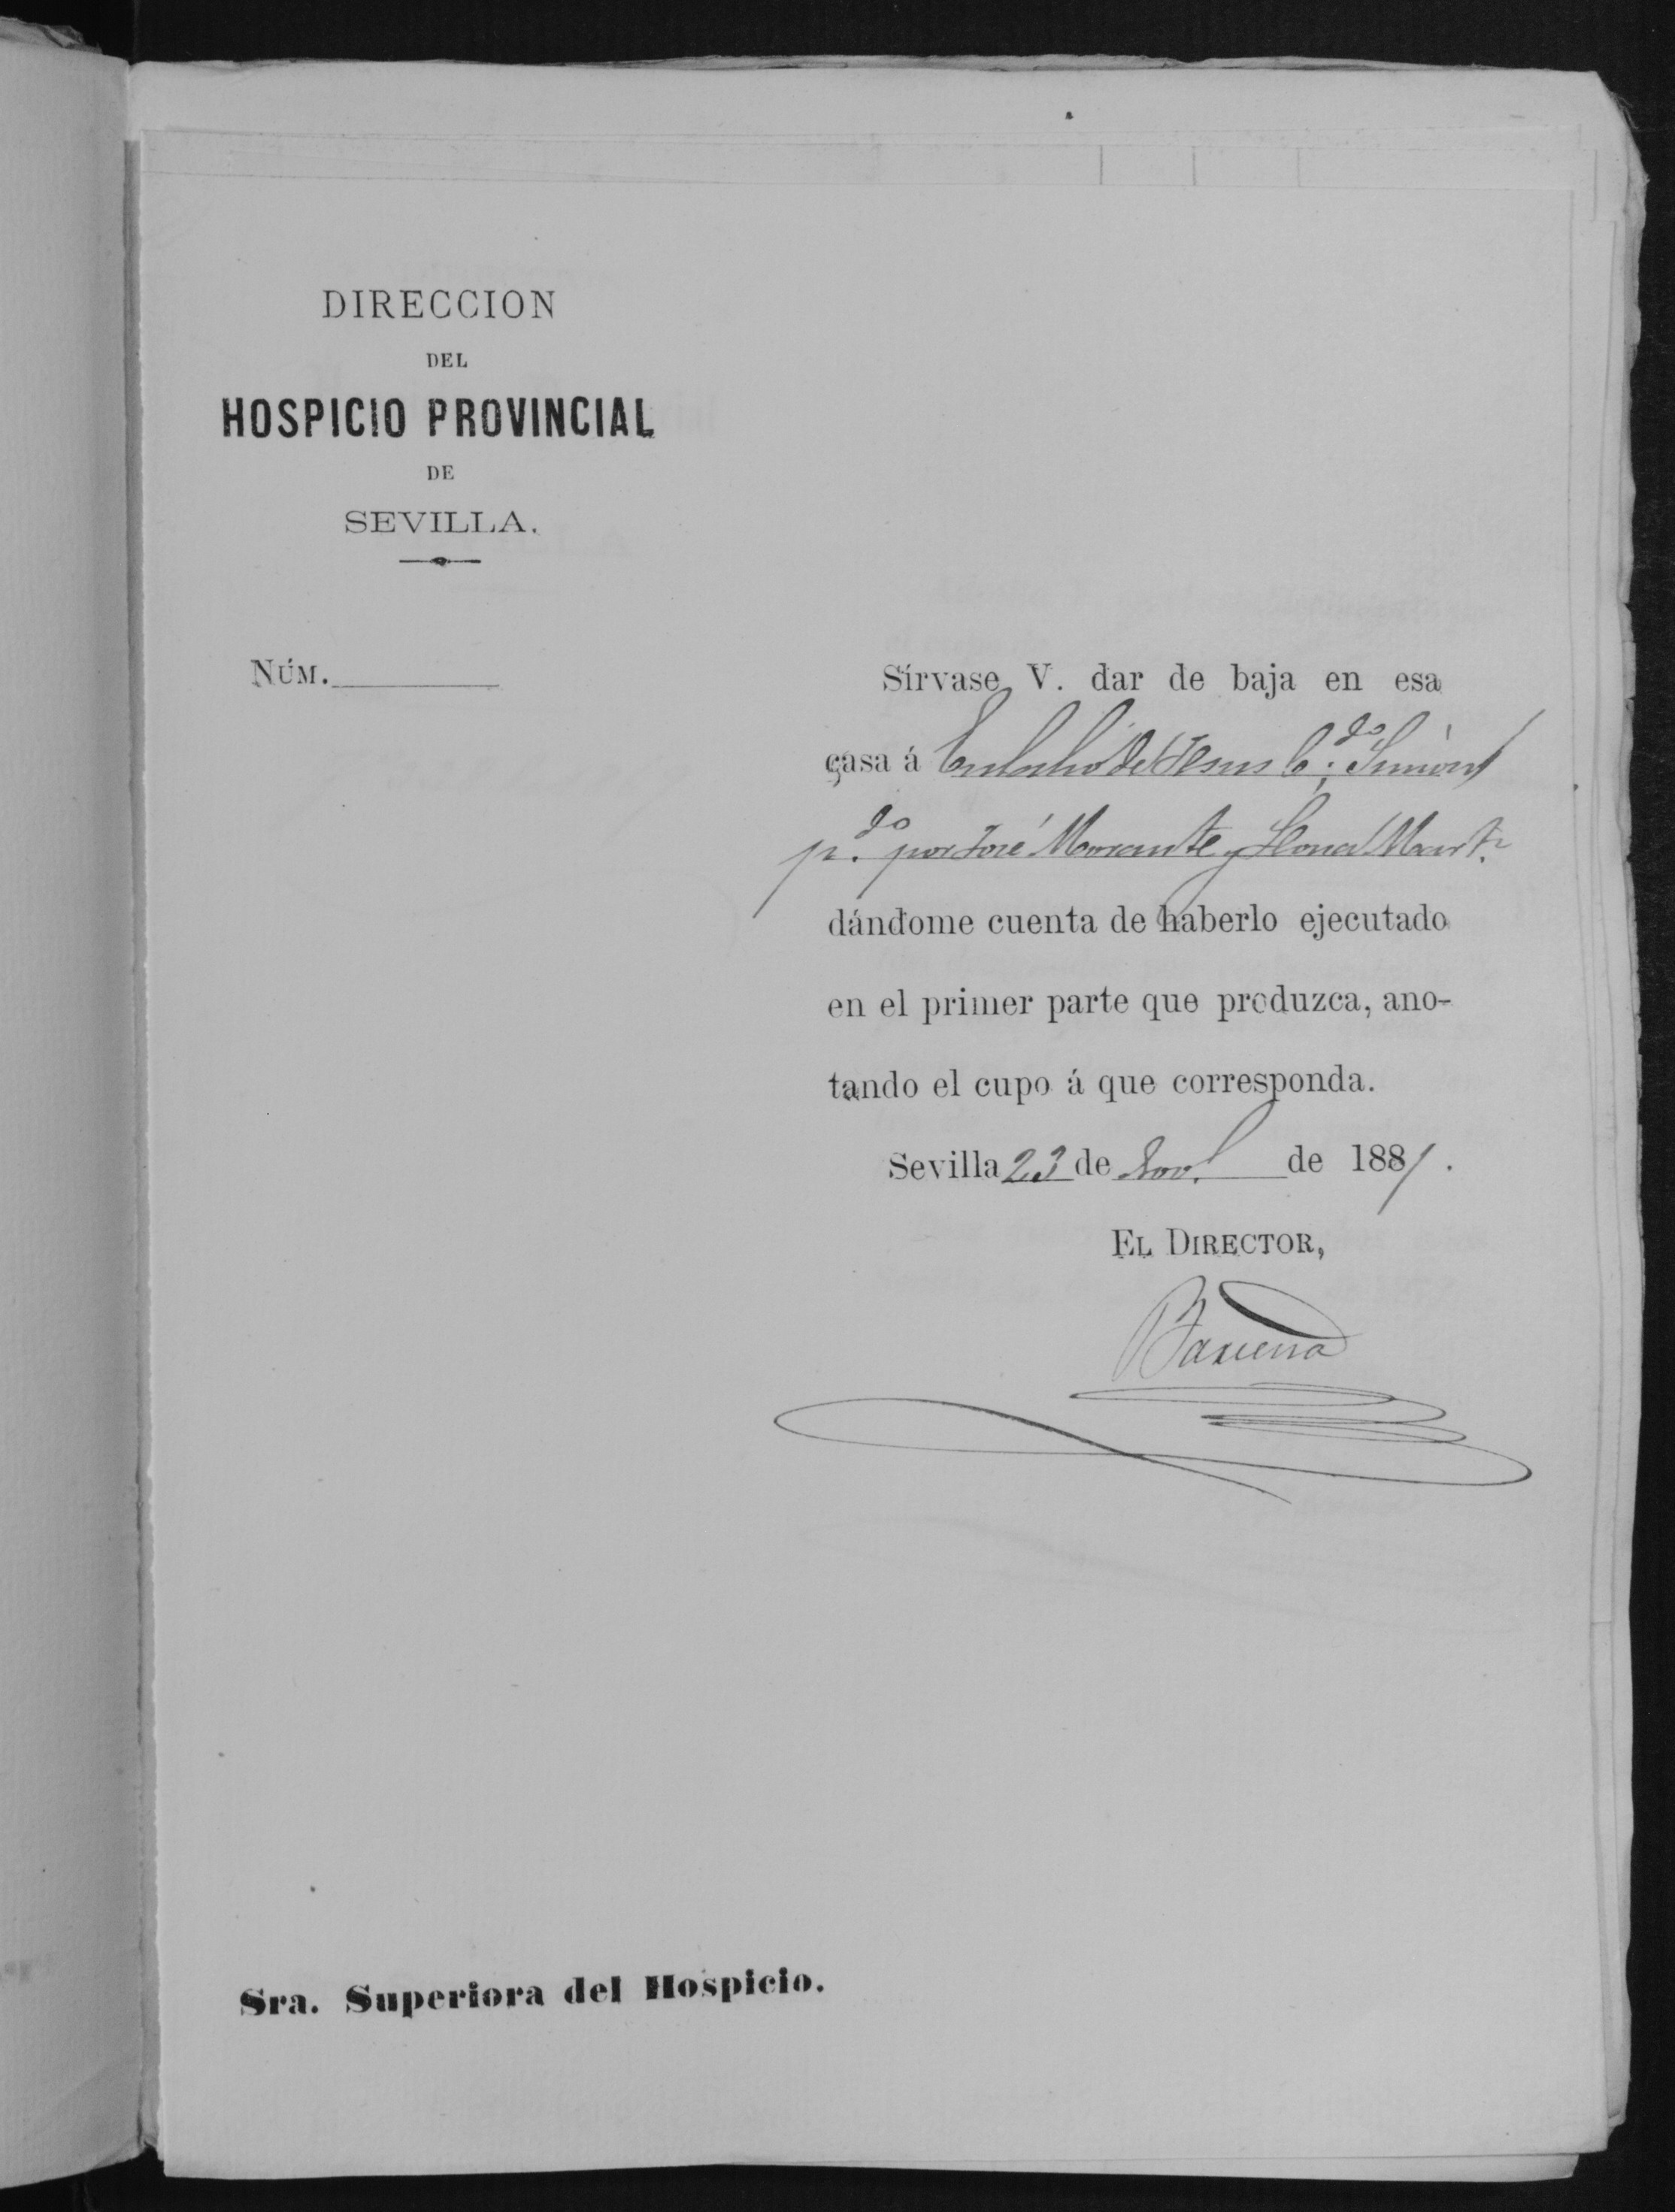 DIRECCION
DEL
HOSPICIO PROVINCIAL
DE
SEVILLA.
NÚM.
Sírvase V. dar de baja en esa
casa á de Jesus C.do Simon
p.do por José Morante y Mart.
dándome cuenta de haberlo ejecutado
en el primer parte que produzca, ano-
tando el cupo á que corresponda.
Sevilla 23 de Nov. de 1881.
EL DIRECTOR,
Sra. Superiora del Hospicio.